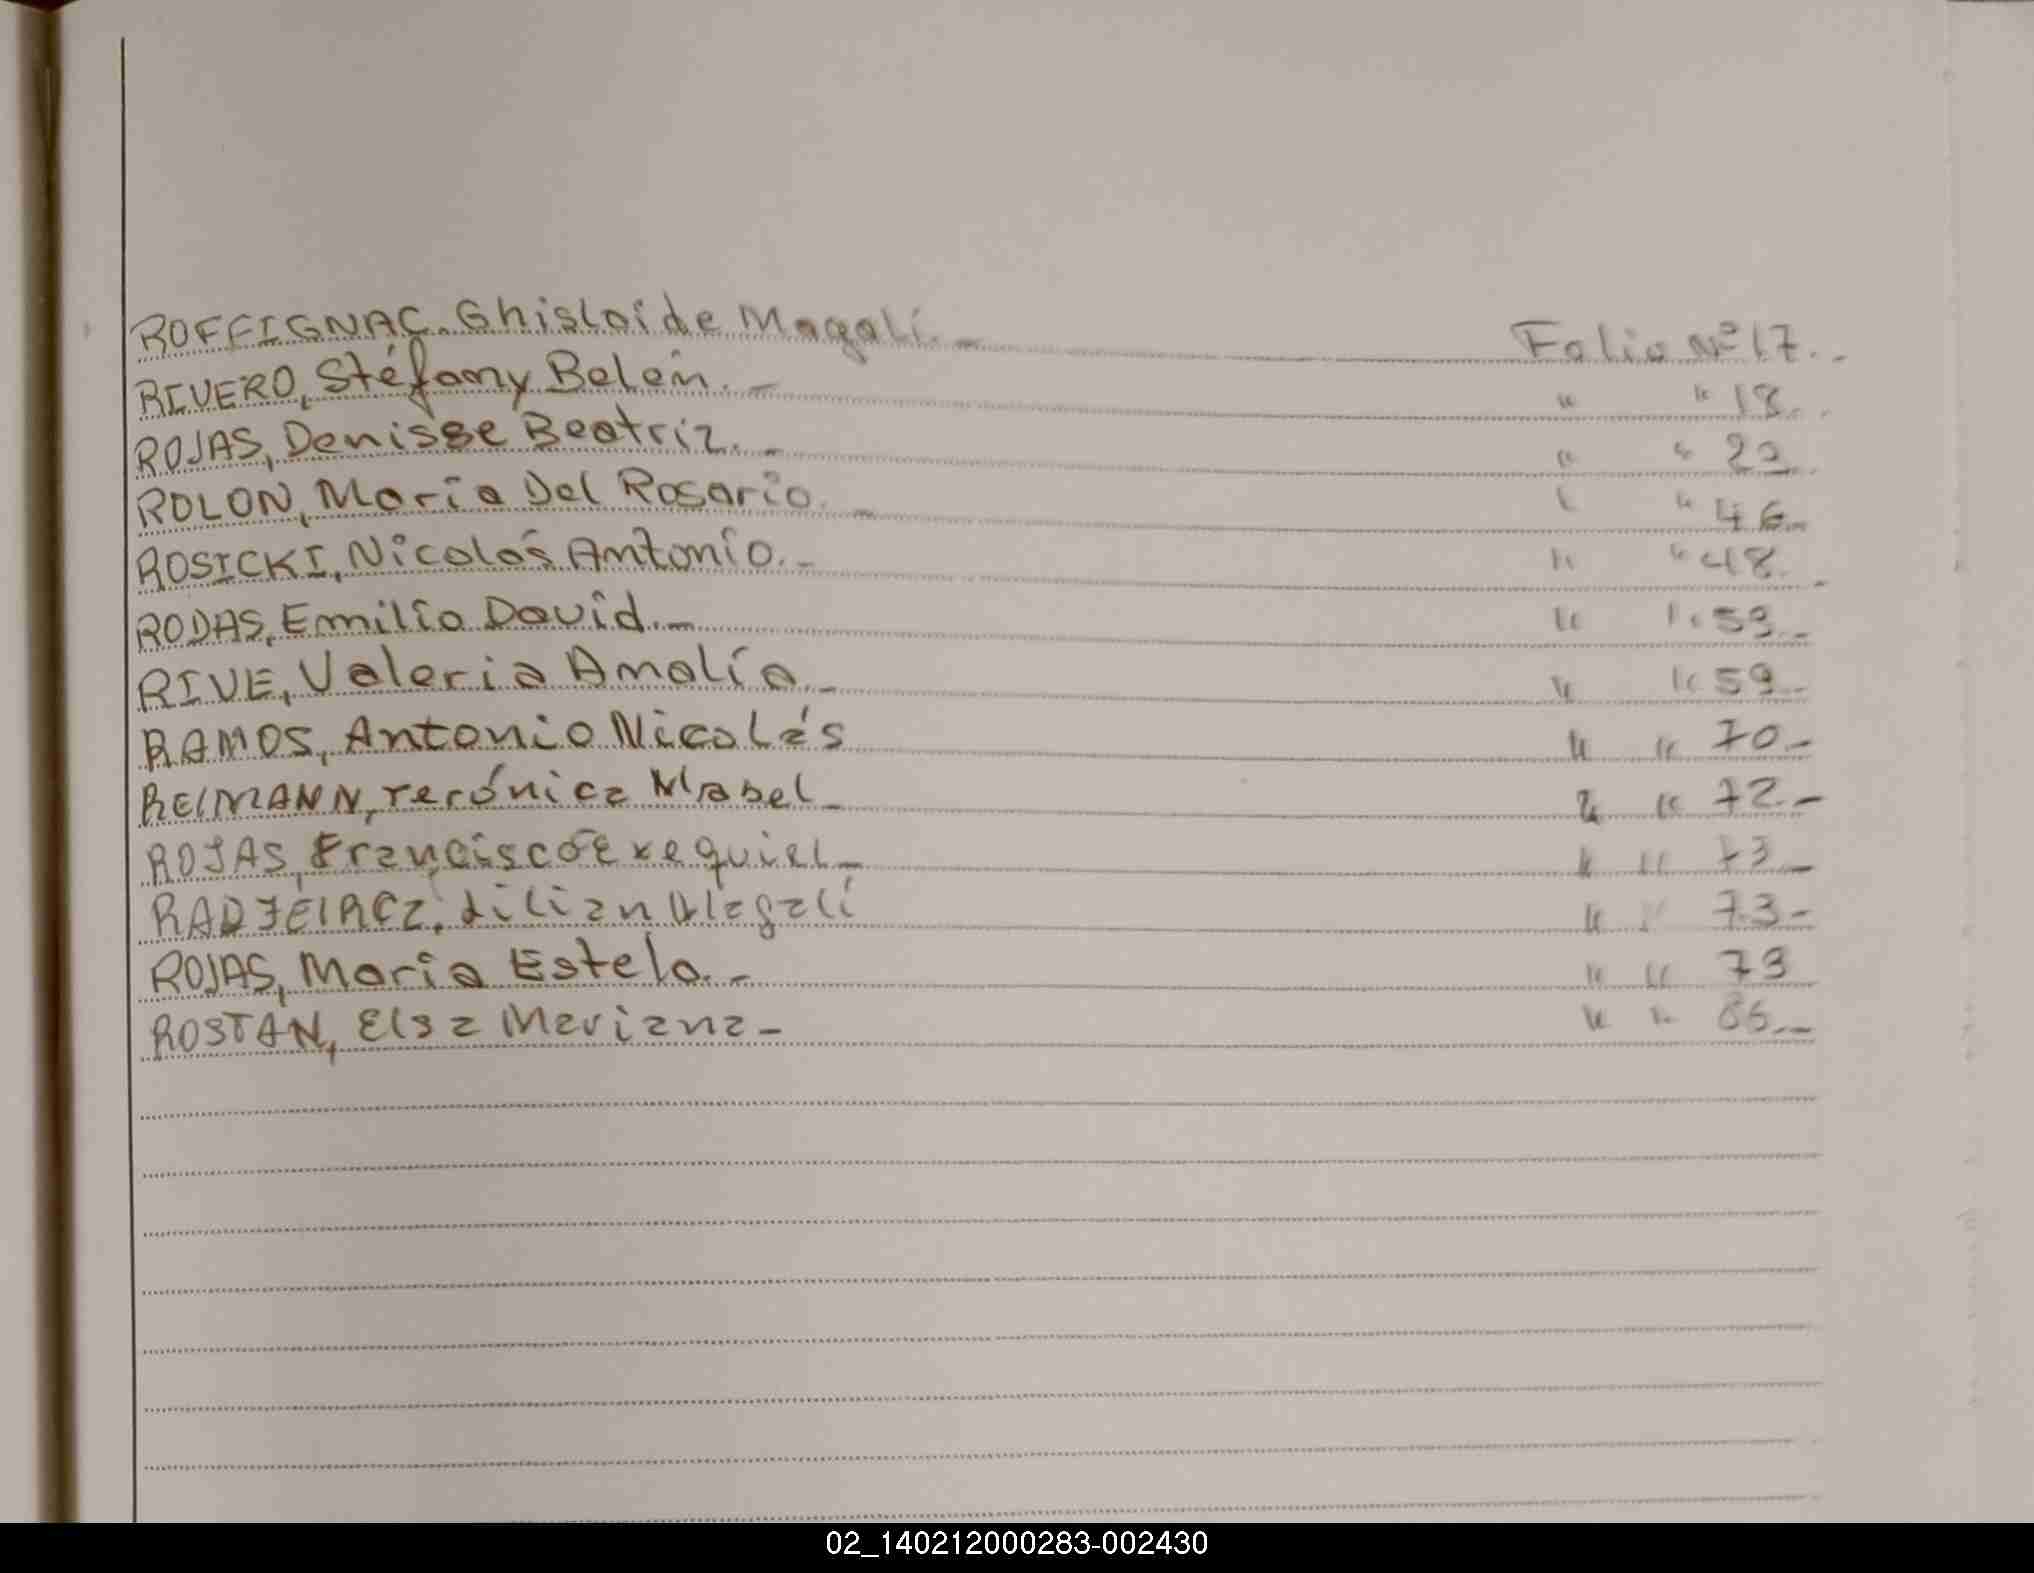 ROFFIGNAC, Ghisloíde Magalí.- Folio Nº 17.-
RIVERO, Stéfany Belén.- " " 18.-
ROJAS, Denisse Beatriz.- " " 22.
ROLON, María Del Rosario.- " " 46.-
ROSICKI, Nicolás Antonio.- " " 48.-
RODAS, Emilio David.- " " 59.-
RIVE, Valeria Amalía.- " " 59.-
RAMOS, Antonio Nicolás " " 70.-
REIMANN, Verónica Mabel- " " 72.-
ROJAS, Francisco Exequiel- " " 73-
Lilian Magalí " " 73-
ROJAS, María Estela.- " " 79
ROSTAN, Elsa Mariana- " " 86.-
02_140212000283-002430